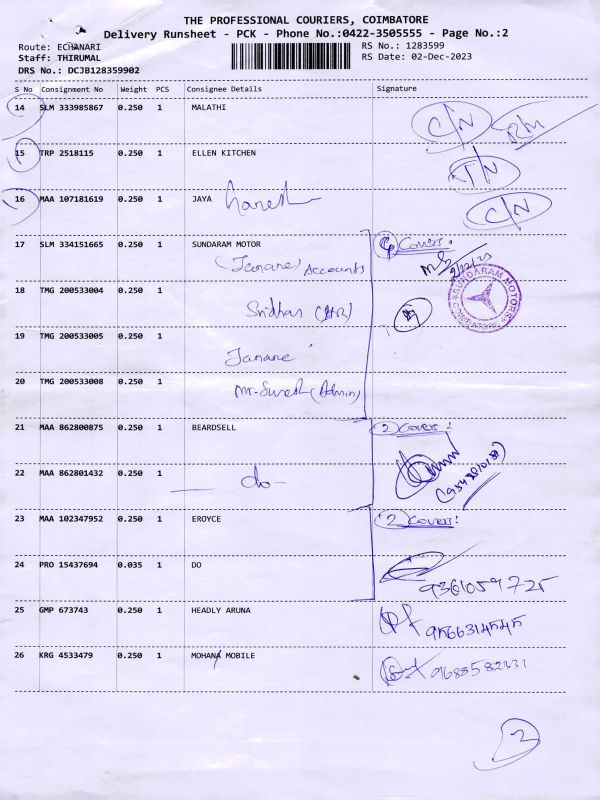 THE PROFESSIONAL COURIERS, COIMBATORE
Delivery Runsheet - PCK - Phone No.:0422-3505555 - Page No.:2
Route: ECHANARI RS No.: 1283599
Staff: THIRUMAL RS Date: 02-Dec-2023
DRS No.: DCJB128359902
S No Consignment No Weight PCS Consignee Details Signature
14 SLM 333985867 0.250 1 MALATHI C/N
15 TRP 2518115 0.250 1 ELLEN KITCHEN
16 MAA 107181619 0.250 1 JAYA C/N
17 SLM 334151665 0.250 1 SUNDARAM MOTOR Covers:
(Janane) Accounts
SUNDARAM MOTORS
18 TMG 200533004 0.250 1
Sridhar (HR)
19 TMG 200533005 0.250 1
Janane
20 TMG 200533008 0.250 1
Mr-Suresh (Admin)
21 MAA 862800875 0.250 1 BEARDSELL 2 Covers:
22 MAA 862801432 0.250 1 -do-
23 MAA 102347952 0.250 1 EROYCE 2 Covers:
24 PRO 15437694 0.035 1 DO
9361059725
25 GMP 673743 0.250 1 HEADLY ARUNA
9566314545
26 KRG 4533479 0.250 1 MOHANA MOBILE
9688582331